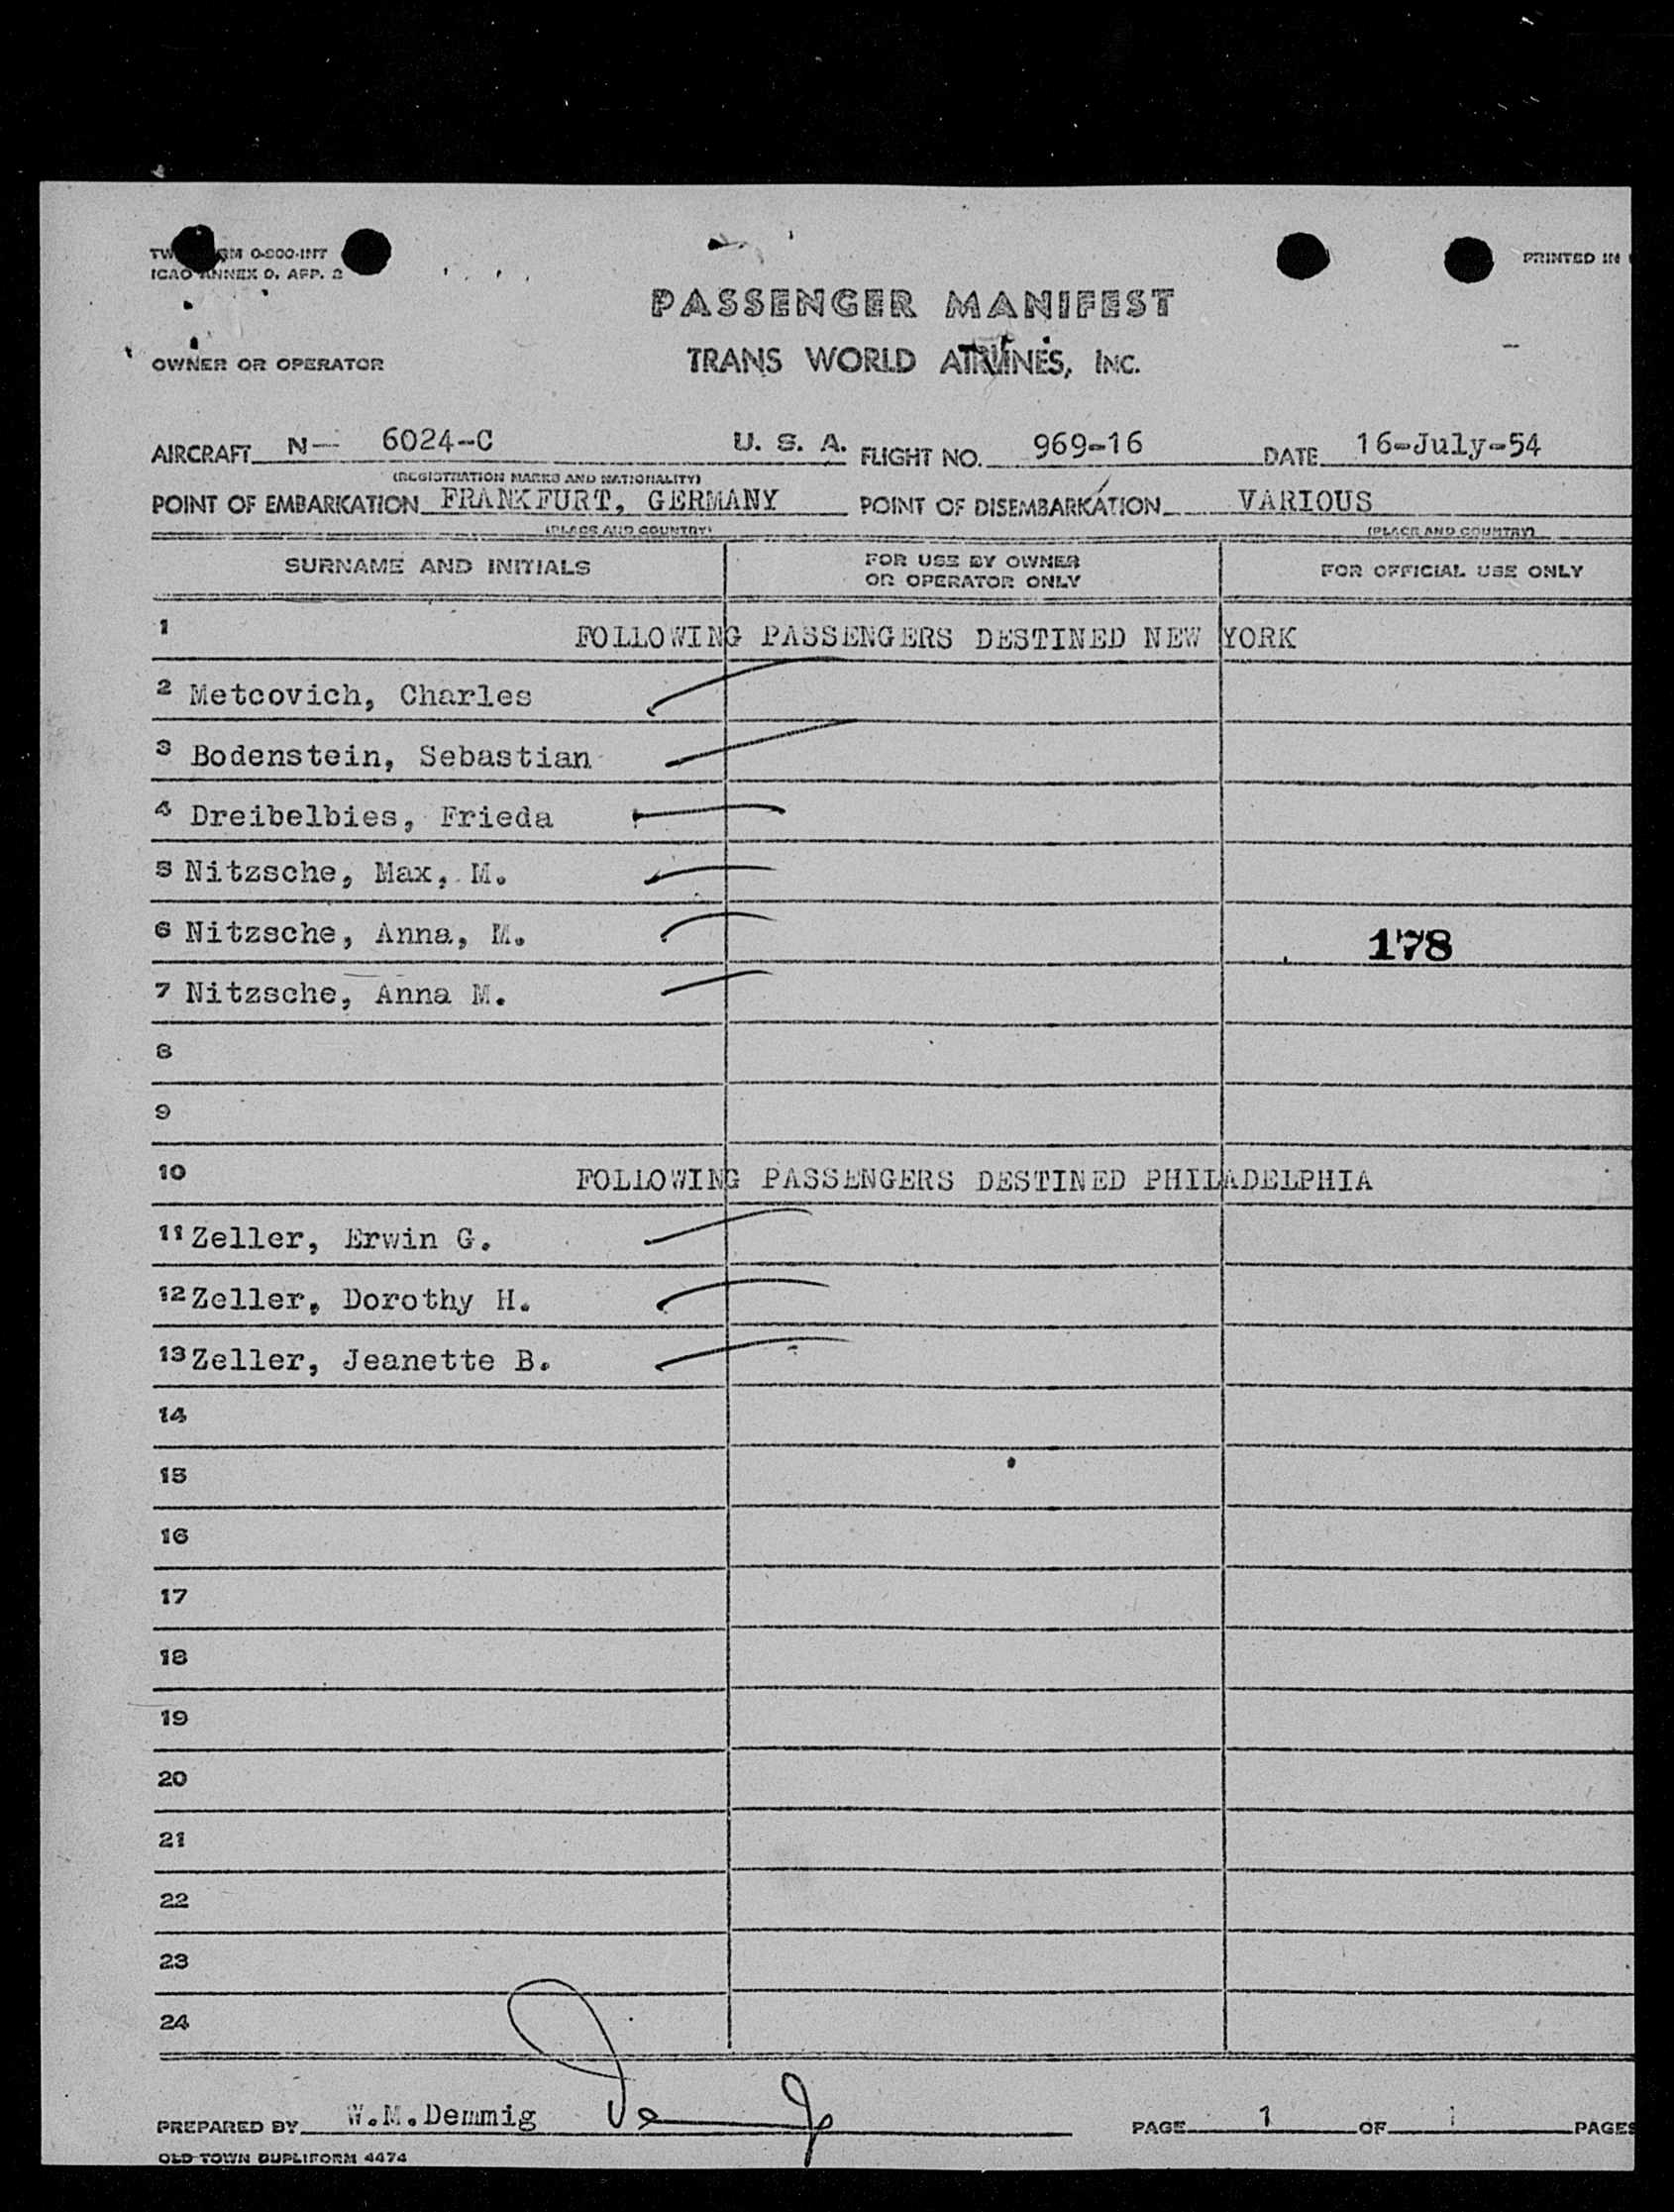 ICAO ANNEX 9, APP. 2
PRINTED IN
PASSENGER MANIFEST
OWNER OR OPERATOR TRANS WORLD AIRLINES, INC.
AIRCRAFT N— 6024-C U. S. A. FLIGHT NO. 969-16 DATE 16-July-54
(REGISTRATION MARKS AND NATIONALITY)
POINT OF EMBARKATION FRANKFURT, GERMANY POINT OF DISEMBARKATION VARIOUS
(PLACE AND COUNTRY) (PLACE AND COUNTRY)
SURNAME AND INITIALS FOR USE BY OWNER OR OPERATOR ONLY FOR OFFICIAL USE ONLY
1 FOLLOWING PASSENGERS DESTINED NEW YORK
2 Metcovich, Charles
3 Bodenstein, Sebastian
4 Dreibelbies, Frieda
5 Nitzsche, Max, M.
6 Nitzsche, Anna, M. 178
7 Nitzsche, Anna M.
8
9
10 FOLLOWING PASSENGERS DESTINED PHILADELPHIA
11 Zeller, Erwin G.
12 Zeller, Dorothy H.
13 Zeller, Jeanette B.
14
15
16
17
18
19
20
21
22
23
24
PREPARED BY W.M.Demmig PAGE 1 OF 1 PAGES
OLD TOWN DUPLIFORM 4474